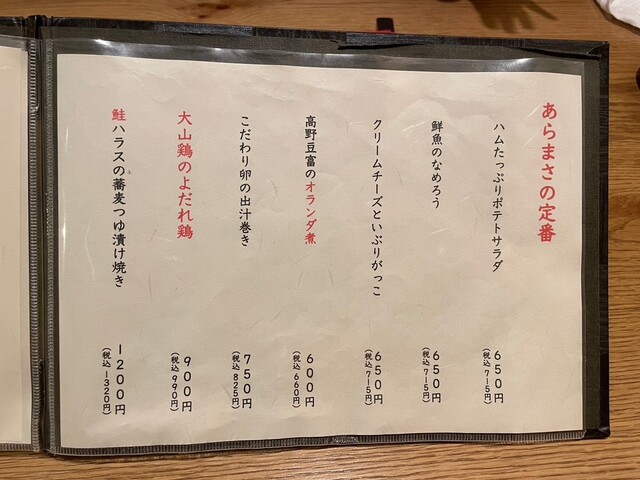 あらまさの定番
ハムたっぷりポテトサラダ
650円
(税込715円)
鮮魚のなめろう
650円
(税込715円)
クリームチーズといぶりがっこ
650円
(税込715円)
高野豆富のオランダ煮
600円
(税込660円)
こだわり卵の出汁巻き
750円
(税込825円)
大山鶏のよだれ鶏
900円
(税込990円)
鮭ハラスの蕎麦つゆ漬け焼き
1200円
(税込1320円)